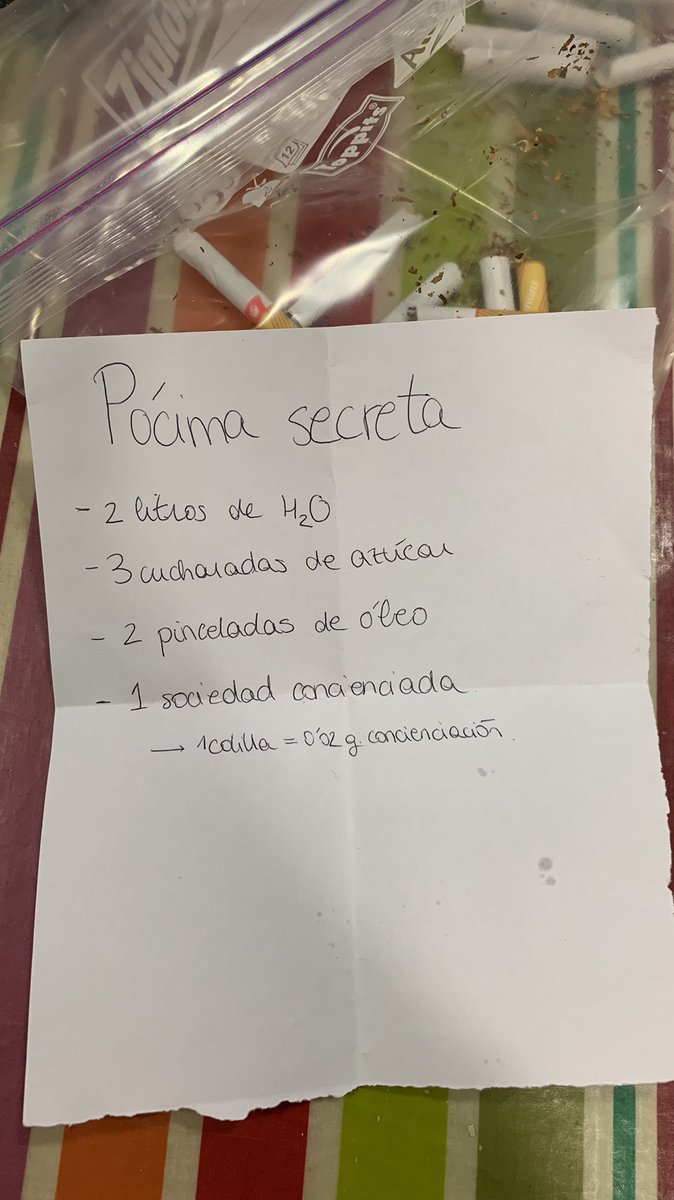 Ziploc
12
toppits
Pócima secreta
- 2 litros de H₂O
- 3 cucharadas de azúcar
- 2 pinceladas de óleo
- 1 sociedad concienciada
→ 1 colilla = 0'02 g. concienciación.